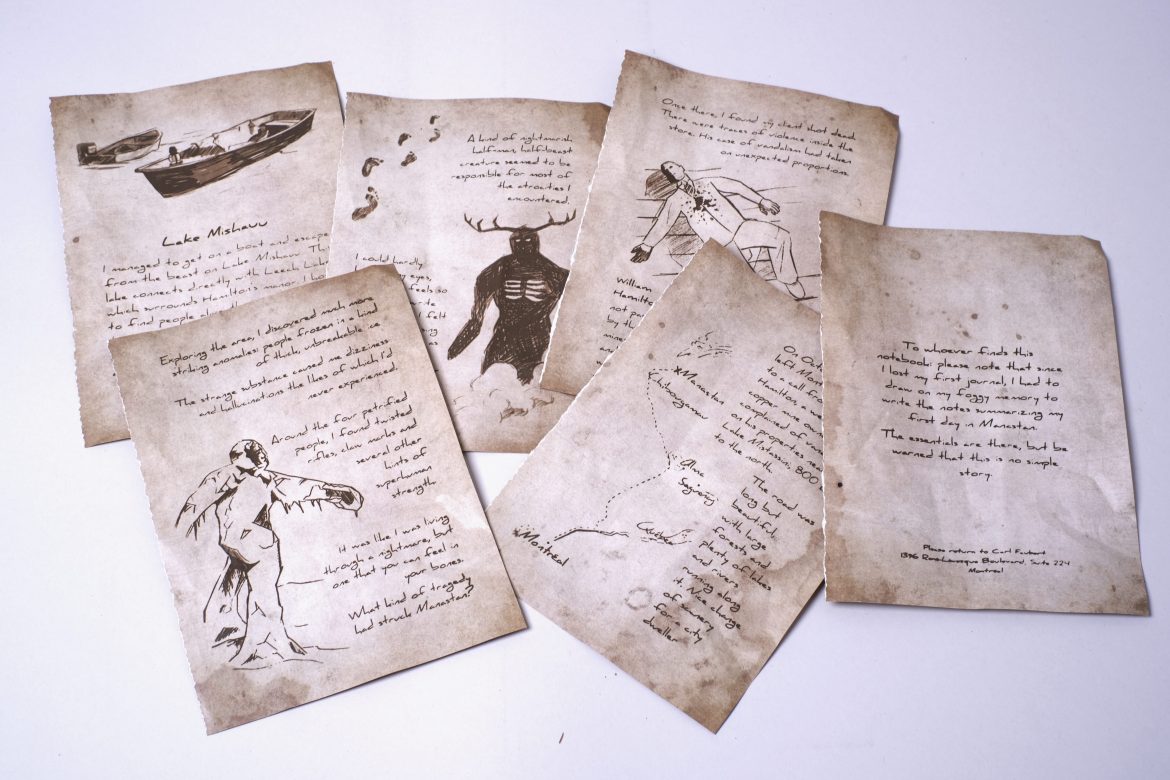 Lake Mishauu
I managed to get on a boat and escape
from the beast on Lake Mishauu. The
lake connects directly with Leech Lake
which surrounds Hamilton's manor. I
to find people
A kind of nightmarish
half-man, half-beast
creature seemed to be
responsible for most of
the atrocities I
encountered.
I could hardly
eyes,
feels so
to
I felt
Once there, I found my client shot dead.
There were traces of violence inside the
store. His case of vandalism had taken
on unexpected proportions.
William
Hamilton
not
by th
Exploring the area, I discovered much more
striking anomalies: people frozen in a kind
of thick, unbreakable ice.
The strange substance caused me dizziness
and hallucinations the likes of which I'd
never experienced.
Around the four petrified
people, I found twisted
rifles, claw marks and
several other
hints of
superhuman
strength
It was like I was living
through a nightmare, but
one that you can feel in
your bones.
What kind of tragedy
had struck Manastan?
Manastan
Chibougamau
Alma
Saguenay
Quebec
Montreal
On Oct
left Mont
to a call f
Hamilton, a w
copper mine own
complained of va
on his properties
Lake Mistassini, 800
to the north.
The road was
long but
beautiful,
with large
forests and
plenty of lakes
and rivers
running along
it. Nice change
of scenery
for a city
dweller
To whoever finds this
notebook: please note that since
I lost my first journal, I had to
draw on my foggy memory to
write the notes summarizing my
first day in Manastan.
The essentials are there, but be
warned that this is no simple
story.
Please return to Carl Faubert
1376 Boulevard, Suite 224
Montreal